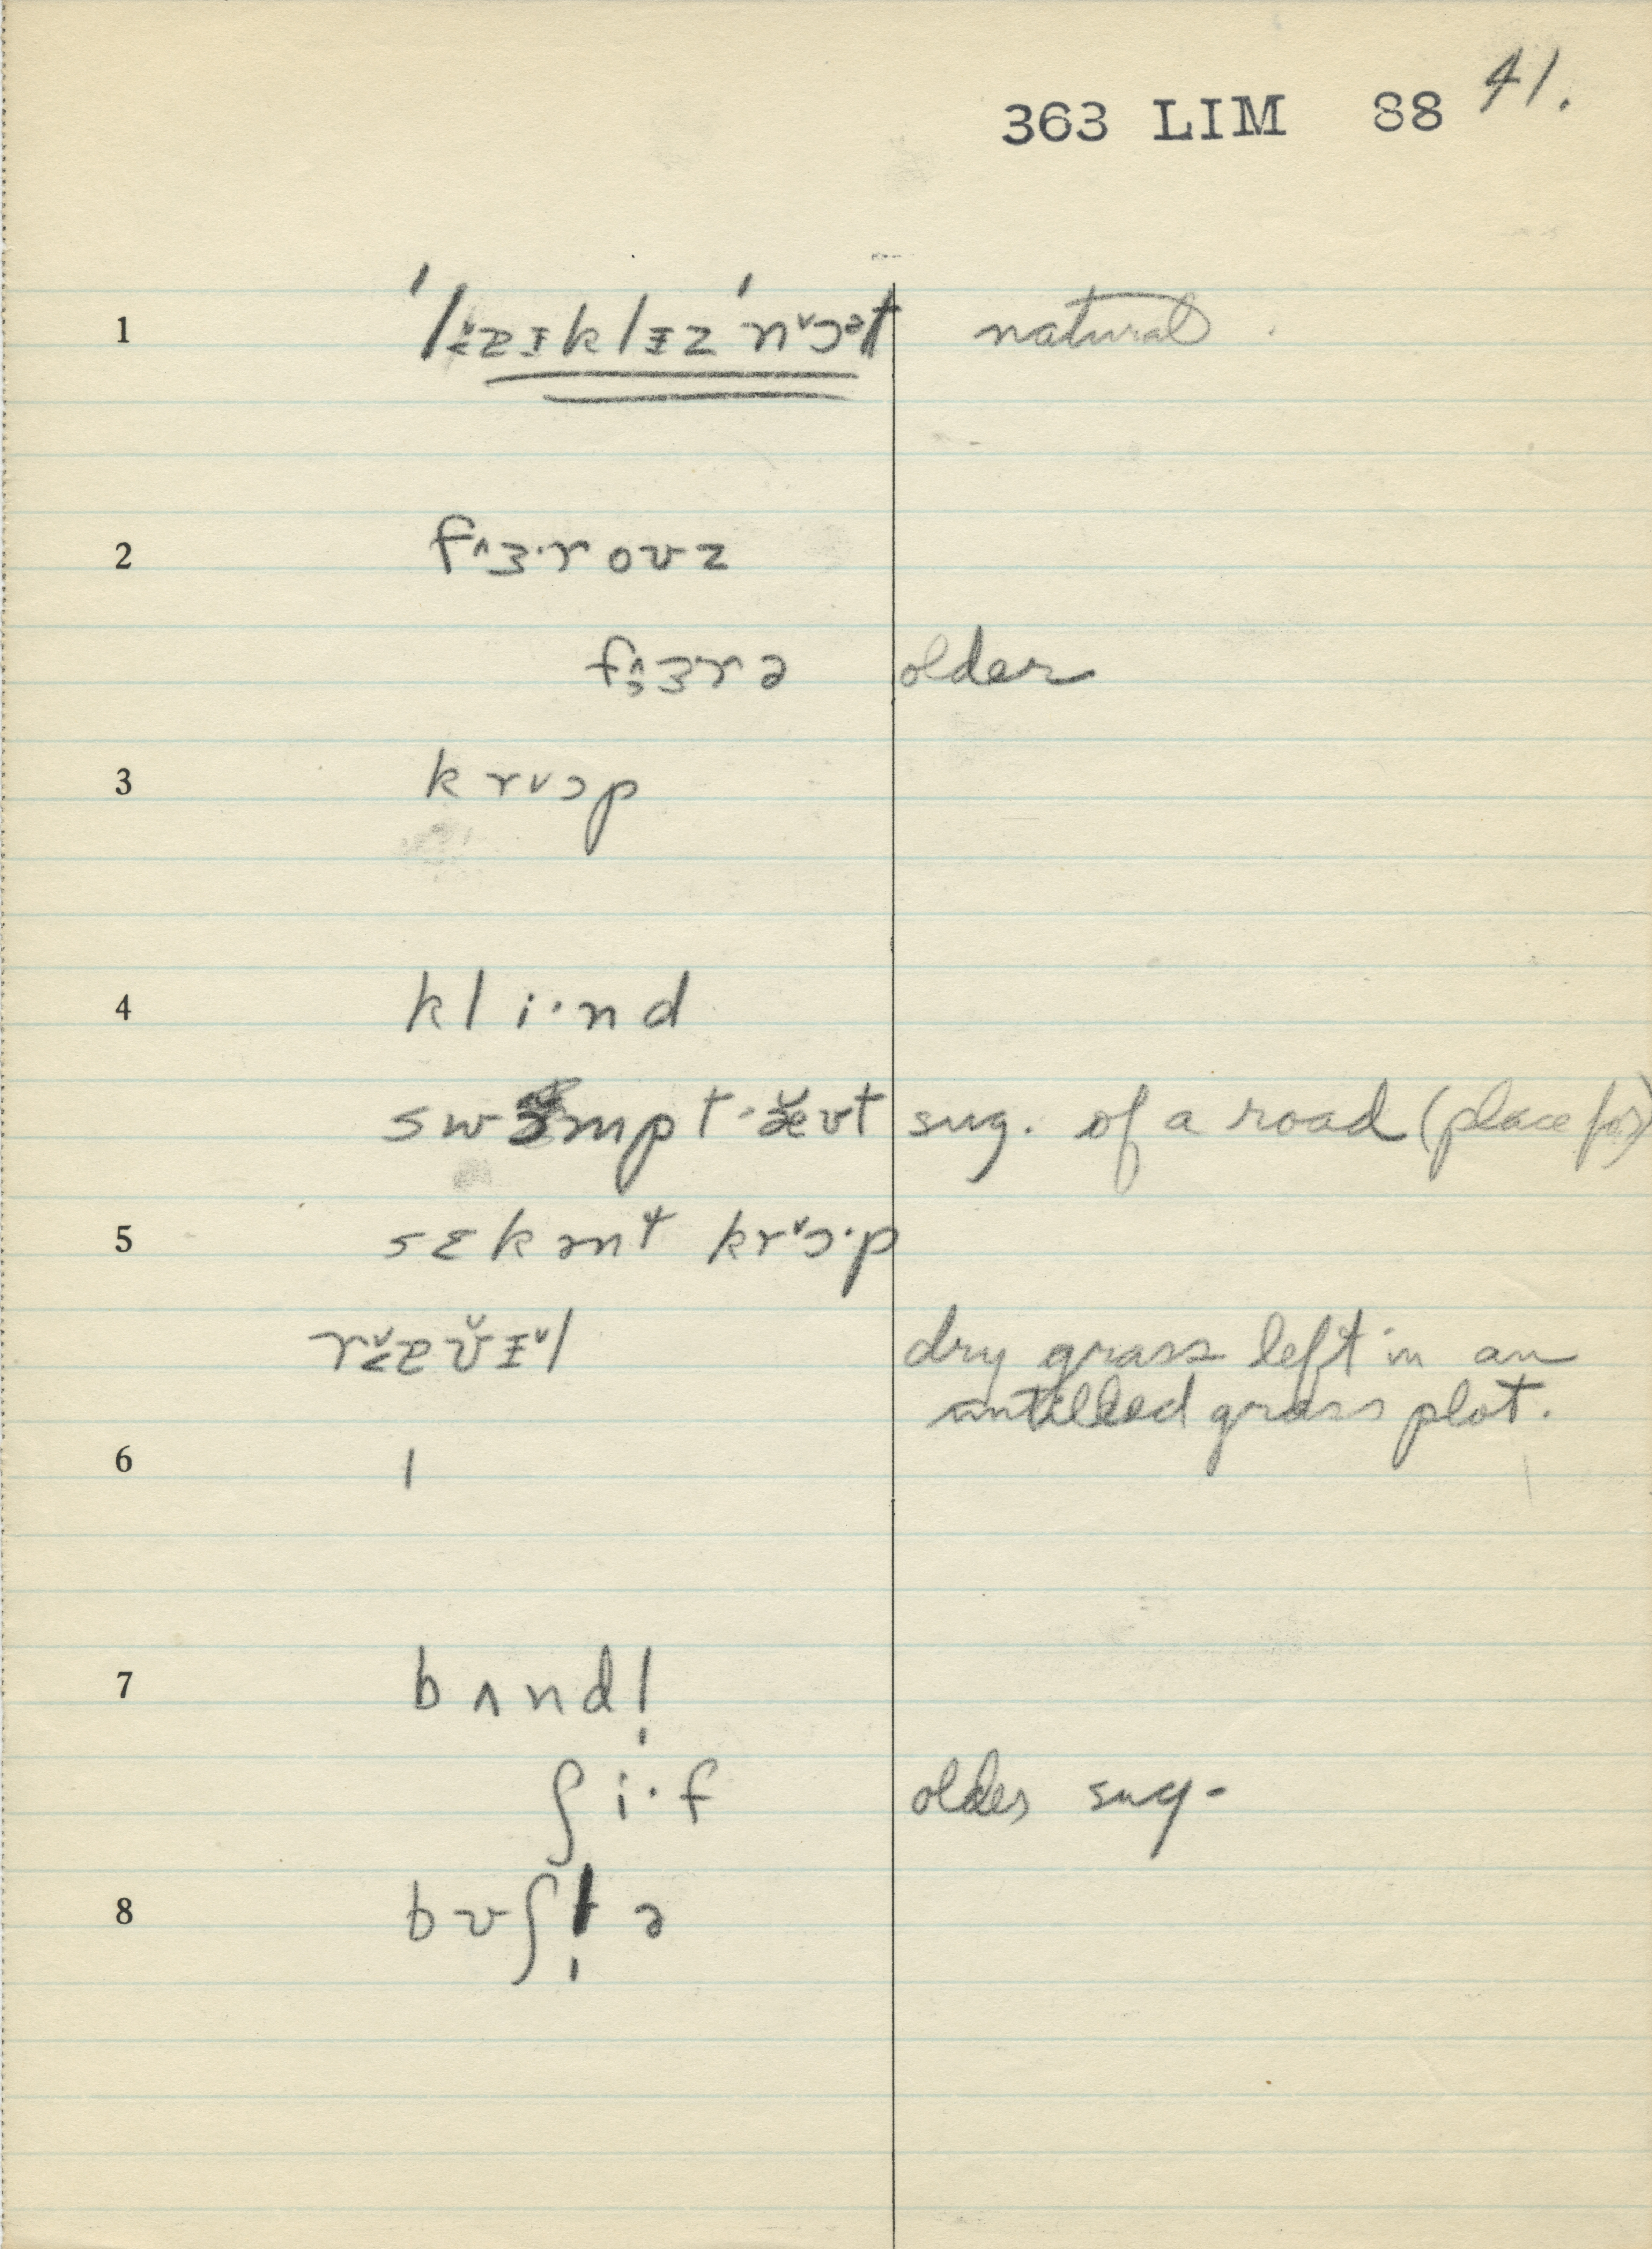 363 LIM 88 41.
1 natural
2 fɜ^·rouz
fɜ^rə older
3 krɔ˅p
4 kli·nd
sug. of a road (place for)
5 sɛkənt krɔ˅·p
dry grass left in an
untilled grass plot.
6
7 bʌndl̩
ʃi·f older sug.
8 bʊʃl̩ ə